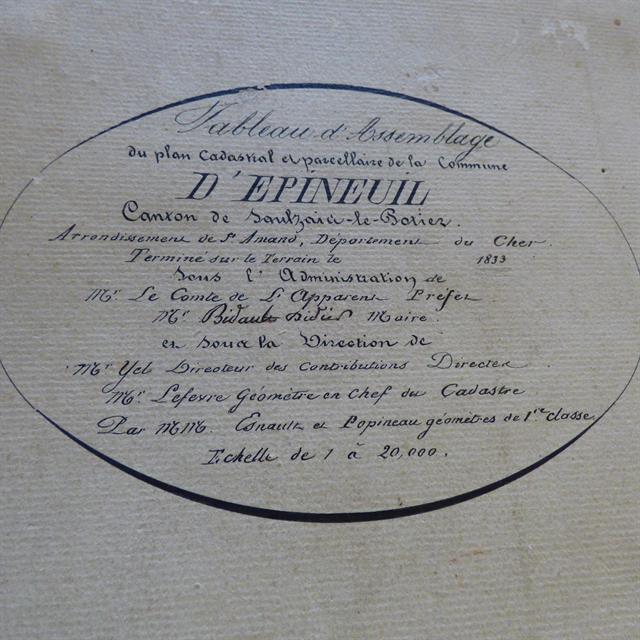 Tableau d'Assemblage
du plan Cadastral et parcellaire de la Commune
D'EPINEUIL
Canton de Saulzais-le-Potier.
Arrondissement de St Amand, Département du Cher.
Terminé sur le Terrain le 1833
Sous l'Administration de
Mr. Le Comte de Lapparent Préfet
Mr. Bidault Maire.
et sous la Direction de
Mr Directeur des Contributions Directes
Mr. Lefevre Géomètre en Chef du Cadastre
Par MM. Esnault et Popineau géomètres de 1re classe
Echelle de 1 à 20,000.